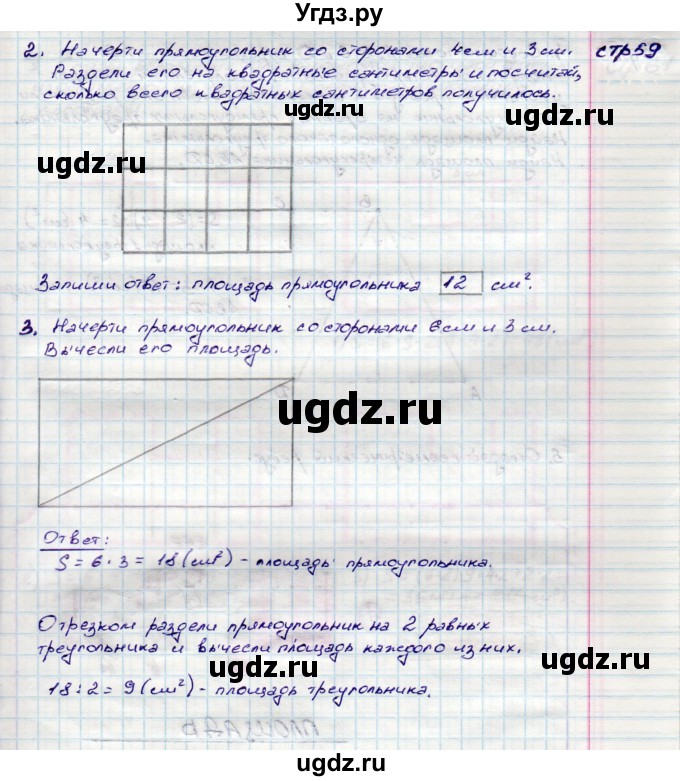 Угдз.ру
2. Начерти прямоугольник со сторонами 4см и 3см. стр 59
Раздели его на квадратные сантиметры и посчитай,
сколько всего квадратных сантиметров получилось.
ugdz.ru ugdz.ru
ugdz.ru ugdz.ru
Запиши ответ: площадь прямоугольника 12 см².
3. Начерти прямоугольник со сторонами 6см и 3см.
Вычесли его площадь.
ugdz.ru
ugdz.ru ugdz.ru
Ответ:
S = 6 · 3 = 18 (см²) - площадь прямоугольника.
Отрезком раздели прямоугольник на 2 равных
треугольника и вычесли площадь каждого из них.
18 : 2 = 9 (см²) - площадь треугольника.
ugdz.ru ugdz.ru